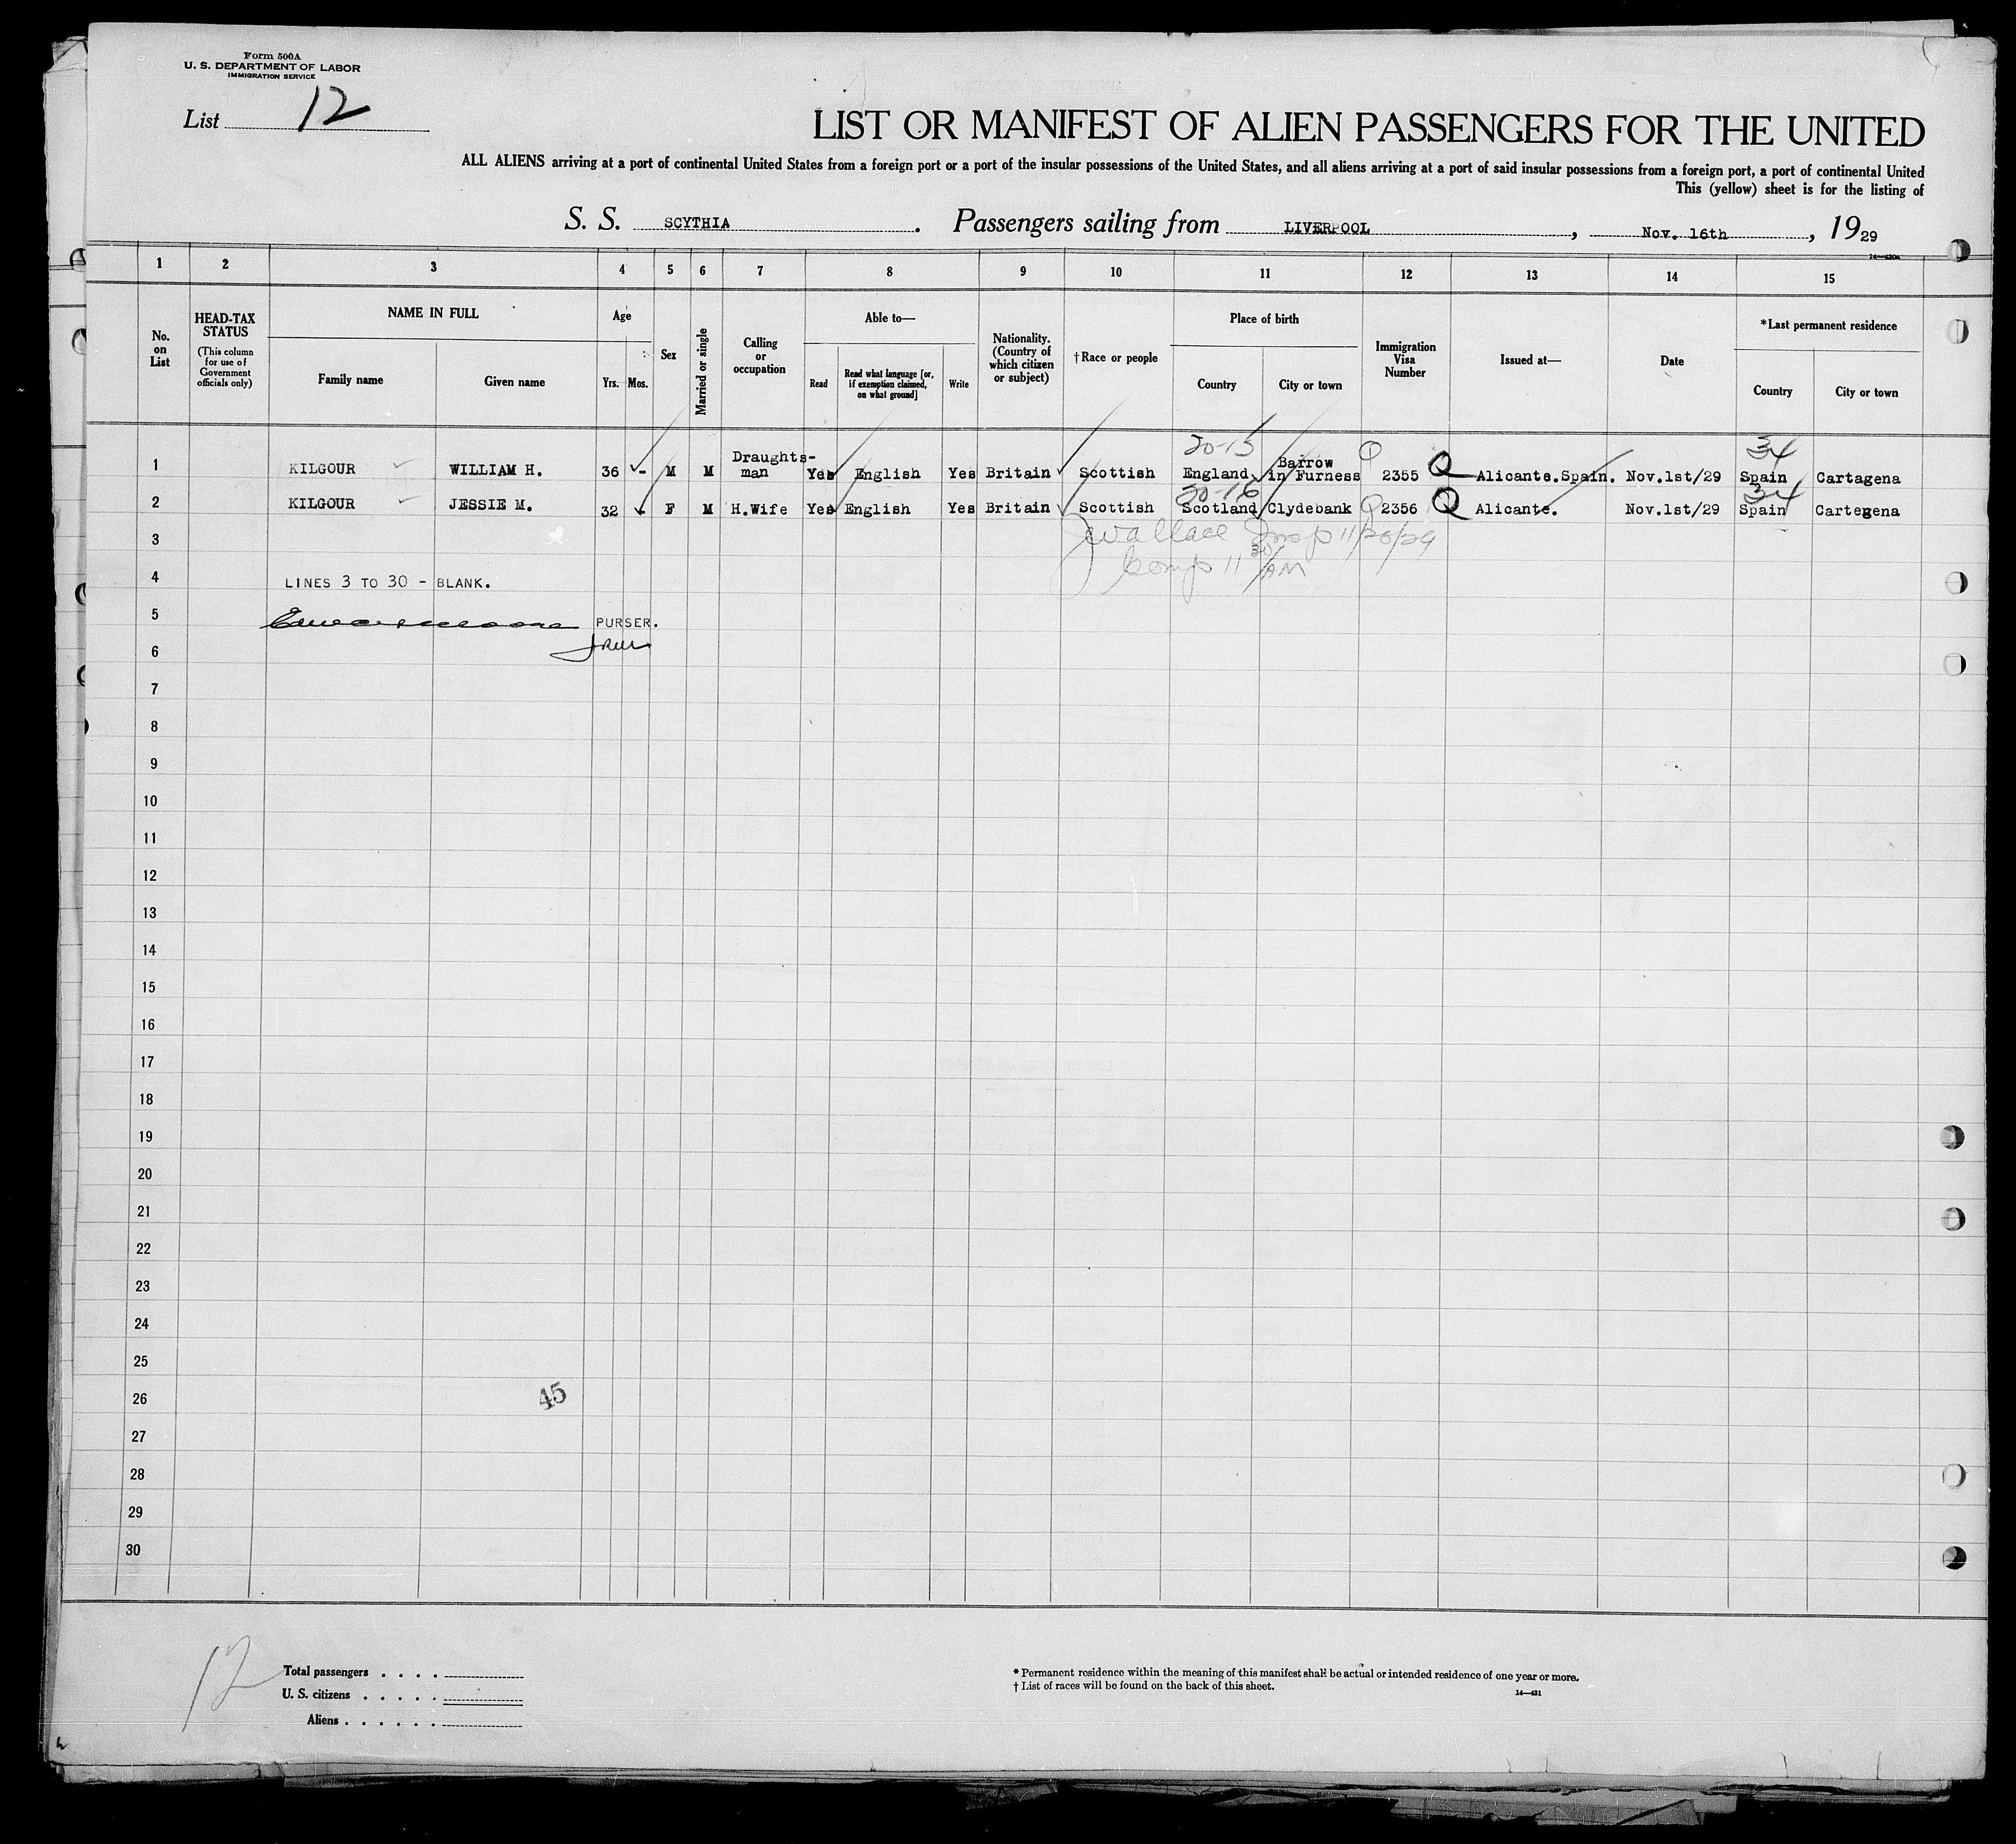 Form 500A
U. S. DEPARTMENT OF LABOR
IMMIGRATION SERVICE
List 12
LIST OR MANIFEST OF ALIEN PASSENGERS FOR THE UNITED
ALL ALIENS arriving at a port of continental United States from a foreign port or a port of the insular possessions of the United States, and all aliens arriving at a port of said insular possessions from a foreign port, a port of continental United
This (yellow) sheet is for the listing of
S. S. SCYTHIA. Passengers sailing from LIVERPOOL, Nov. 16th, 1929
1 2 3 4 5 6 7 8 9 10 11 12 13 14 15
No. on List
HEAD-TAX STATUS
(This column for use of Government officials only)
NAME IN FULL
Family name
Given name
Age
Yrs. Mos.
Sex
Married or single
Calling or occupation
Able to—
Read
Read what language [or, if exemption claimed, on what ground]
Write
Nationality. (Country of which citizen or subject)
† Race or people
Place of birth
Country
City or town
Immigration Visa Number
Issued at—
Date
*Last permanent residence
Country
City or town
20-15 34
1 KILGOUR WILLIAM H. 36 - M M Draughts-man Yes English Yes Britain Scottish England Barrow in Furness Q 2355 Q Alicante.Spain. Nov.1st/29 Spain Cartagena
20-16 34
2 KILGOUR JESSIE M. 32 F M H.Wife Yes English Yes Britain Scottish Scotland Clydebank Q 2356 Q Alicante. Nov.1st/29 Spain Cartegena
3 Wallace Insp 11/26/29
Comp 11 30/AM
4 LINES 3 TO 30 - BLANK.
5 PURSER.
6
7
8
9
10
11
12
13
14
15
16
17
18
19
20
21
22
23
24
25
26 45
27
28
29
30
12
Total passengers . . . .
U. S. citizens . . . . .
Aliens . . . . . .
* Permanent residence within the meaning of this manifest shall be actual or intended residence of one year or more.
† List of races will be found on the back of this sheet.
14—431